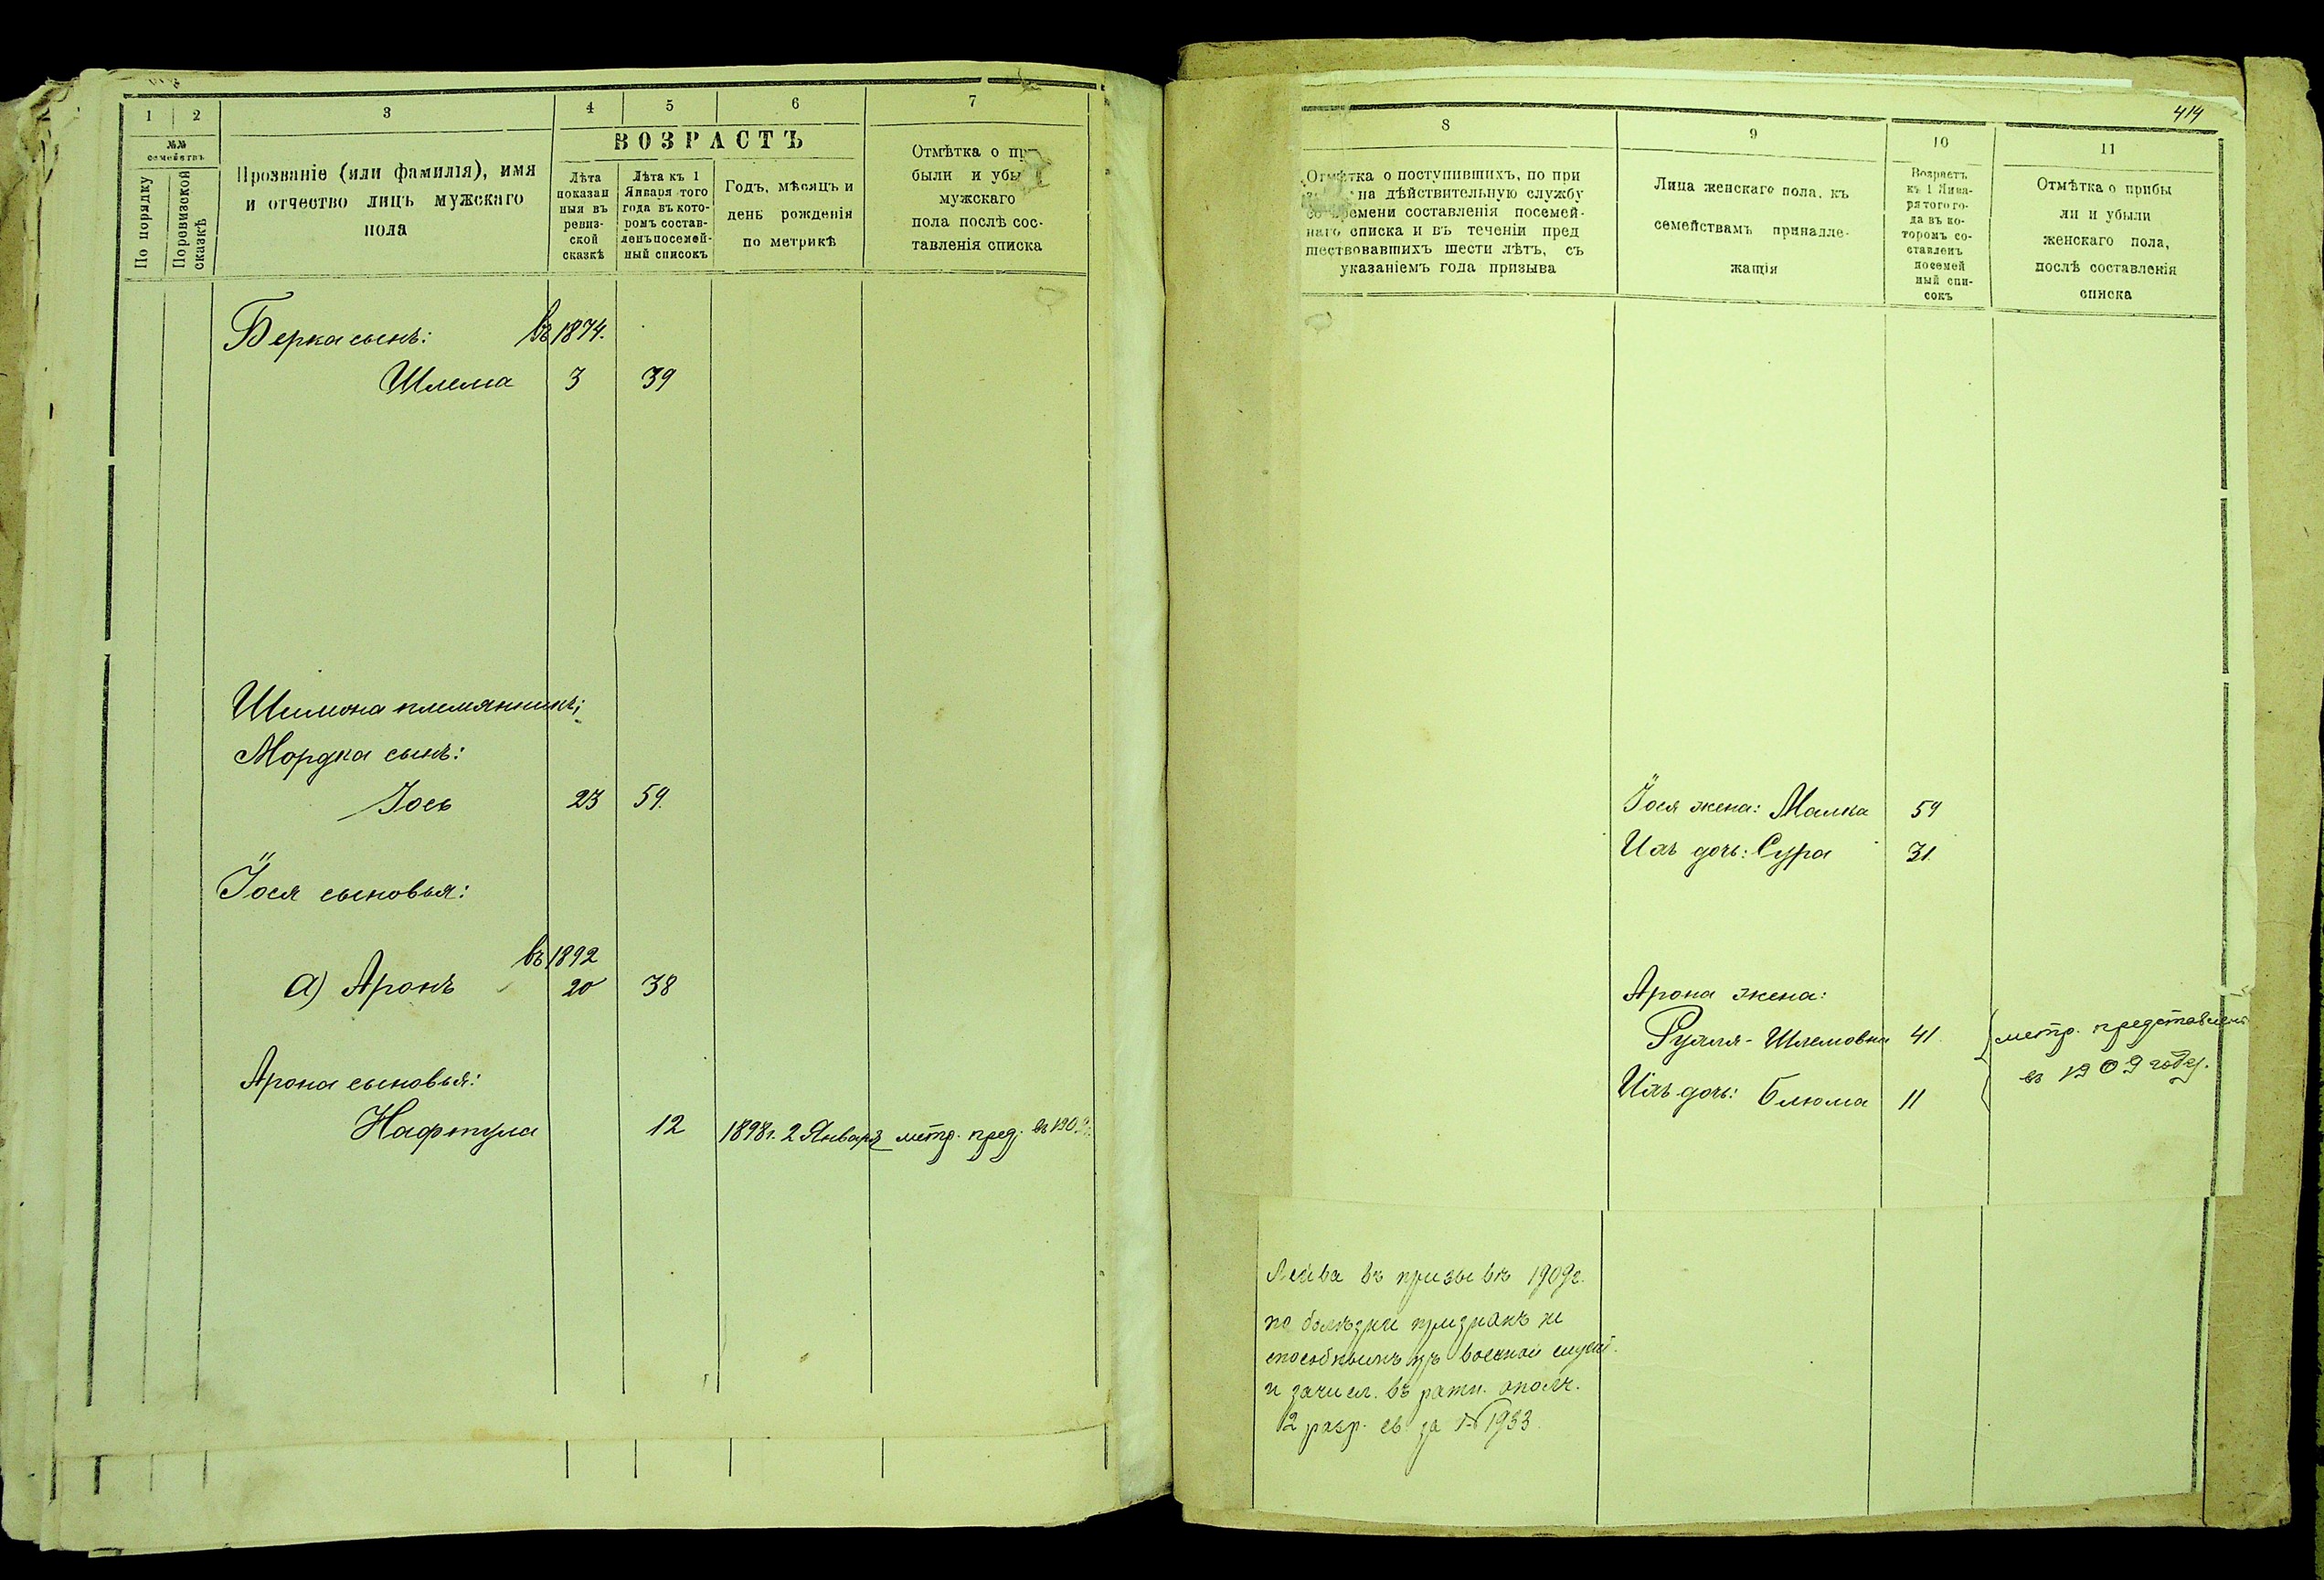 1
2
3
4
5
6
7
№№
семействъ
По порядку
По ревизской
сказкѣ
Прозваніе (или фамилія), имя
и отчество лицъ мужскаго
пола
ВОЗРАСТЪ
Лѣта
показан
ныя въ
ревиз-
ской
сказкѣ
Лѣта къ 1
Января того
года въ кото-
ромъ состав-
ленъ посемей-
ный списокъ
Годъ, мѣсяцъ и
день рожденія
по метрикѣ
Отмѣтка о
были и убы
мужскаго
пола послѣ сос-
тавленія списка
Берка сынъ: въ 1874.
Шлема 3 39
Шимона племянникъ;
Мордка сынъ:
Іось 23 59.
Іося сыновья:
въ 1892
а) Аронъ 20 38
Арона сыновья:
Нафтула 12 1898 г. 2 Января метр. пред. въ 190
414
8
9
10
11
Отмѣтка о поступившихъ, по при
на дѣйствительную службу
со времени составленія посемей-
наго списка и въ теченіи пред
шествовавшихъ шести лѣтъ, съ
указаніемъ года призыва
Лица женскаго пола, къ
семействамъ принадле-
жащія
Возрастъ
къ 1 Янва-
ря того го-
да въ ко-
торомъ со-
ставленъ
посемей
ный спи-
сокъ
Отмѣтка о прибы
ли и убыли
женскаго пола,
послѣ составленія
списка
Іося жена: Малка 59
Ихъ дочь: Сура 31.
Арона жена:
Рухля-Шлемовна 41 метр. представлены
Ихъ дочь: Блюма 11 въ 1909 году.
Лейва въ призывъ 1909 г.
по болѣзни признанъ не
способнымъ къ военной служб.
и зачисл. въ ратн. ополч.
2 разр. св. за № 1933